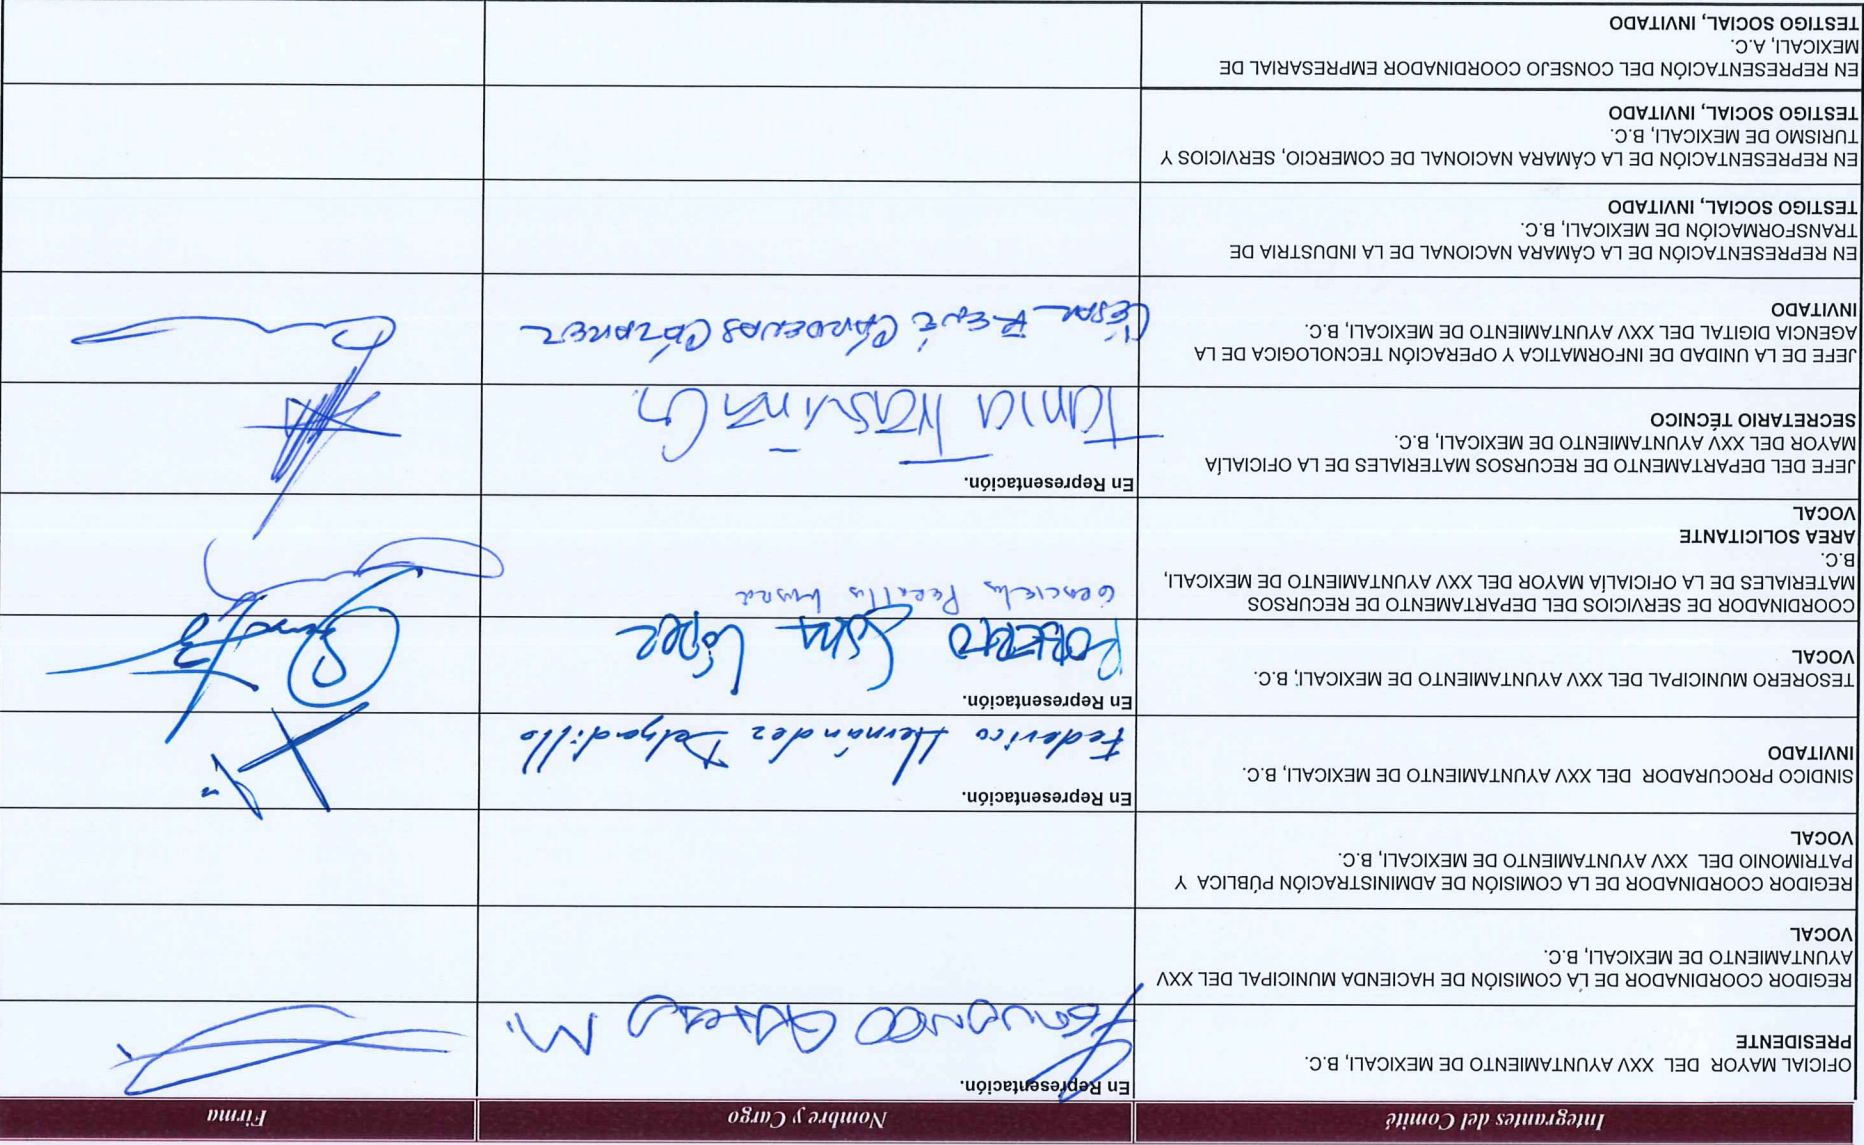 Integrantes del Comité
Nombre y Cargo
Firma
OFICIAL MAYOR DEL XXV AYUNTAMIENTO DE MEXICALI, B.C.
PRESIDENTE
En Representación.
Francisco M.
REGIDOR COORDINADOR DE LA COMISIÓN DE HACIENDA MUNICIPAL DEL XXV
AYUNTAMIENTO DE MEXICALI, B.C.
VOCAL
REGIDOR COORDINADOR DE LA COMISIÓN DE ADMINISTRACIÓN PÚBLICA Y
PATRIMONIO DEL XXV AYUNTAMIENTO DE MEXICALI, B.C.
VOCAL
SINDICO PROCURADOR DEL XXV AYUNTAMIENTO DE MEXICALI, B.C.
INVITADO
En Representación.
Federico Hernández Delgadillo
TESORERO MUNICIPAL DEL XXV AYUNTAMIENTO DE MEXICALI, B.C.
VOCAL
En Representación.
ROBERTO López
COORDINADOR DE SERVICIOS DEL DEPARTAMENTO DE RECURSOS
MATERIALES DE LA OFICIALÍA MAYOR DEL XXV AYUNTAMIENTO DE MEXICALI,
B.C.
AREA SOLICITANTE
VOCAL
JEFE DEL DEPARTAMENTO DE RECURSOS MATERIALES DE LA OFICIALÍA
MAYOR DEL XXV AYUNTAMIENTO DE MEXICALI, B.C.
SECRETARIO TÉCNICO
En Representación.
Tania Trasviña G.
JEFE DE LA UNIDAD DE INFORMATICA Y OPERACIÓN TECNOLOGICA DE LA
AGENCIA DIGITAL DEL XXV AYUNTAMIENTO DE MEXICALI, B.C.
INVITADO
CÉSAR RENÉ CÁRDENAS CÁZAREZ
EN REPRESENTACIÓN DE LA CÁMARA NACIONAL DE LA INDUSTRIA DE
TRANSFORMACIÓN DE MEXICALI, B.C.
TESTIGO SOCIAL, INVITADO
EN REPRESENTACIÓN DE LA CÁMARA NACIONAL DE COMERCIO, SERVICIOS Y
TURISMO DE MEXICALI, B.C.
TESTIGO SOCIAL, INVITADO
EN REPRESENTACIÓN DEL CONSEJO COORDINADOR EMPRESARIAL DE
MEXICALI, A.C.
TESTIGO SOCIAL, INVITADO